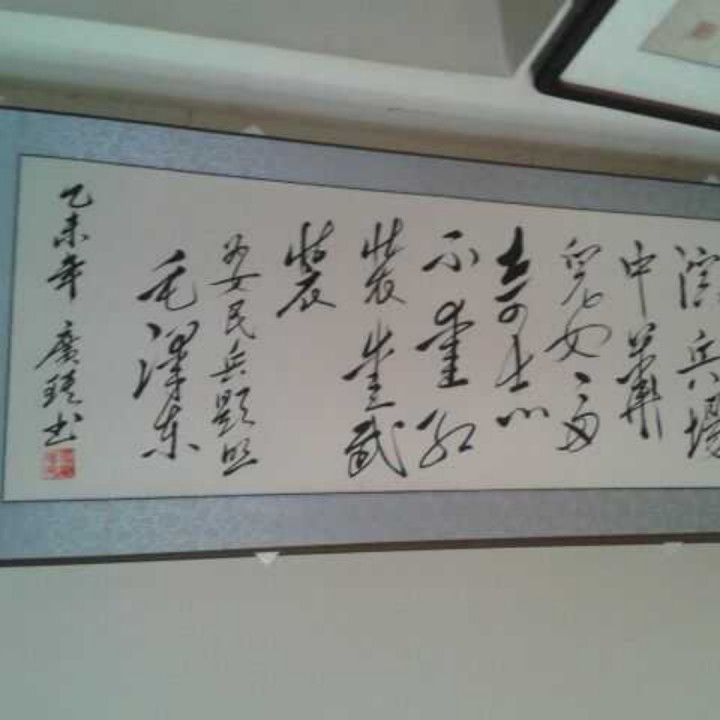 演兵場
中華
兒女多
奇志
不愛紅
裝愛武
裝
为女民兵題照
毛澤东
乙未年 廣书